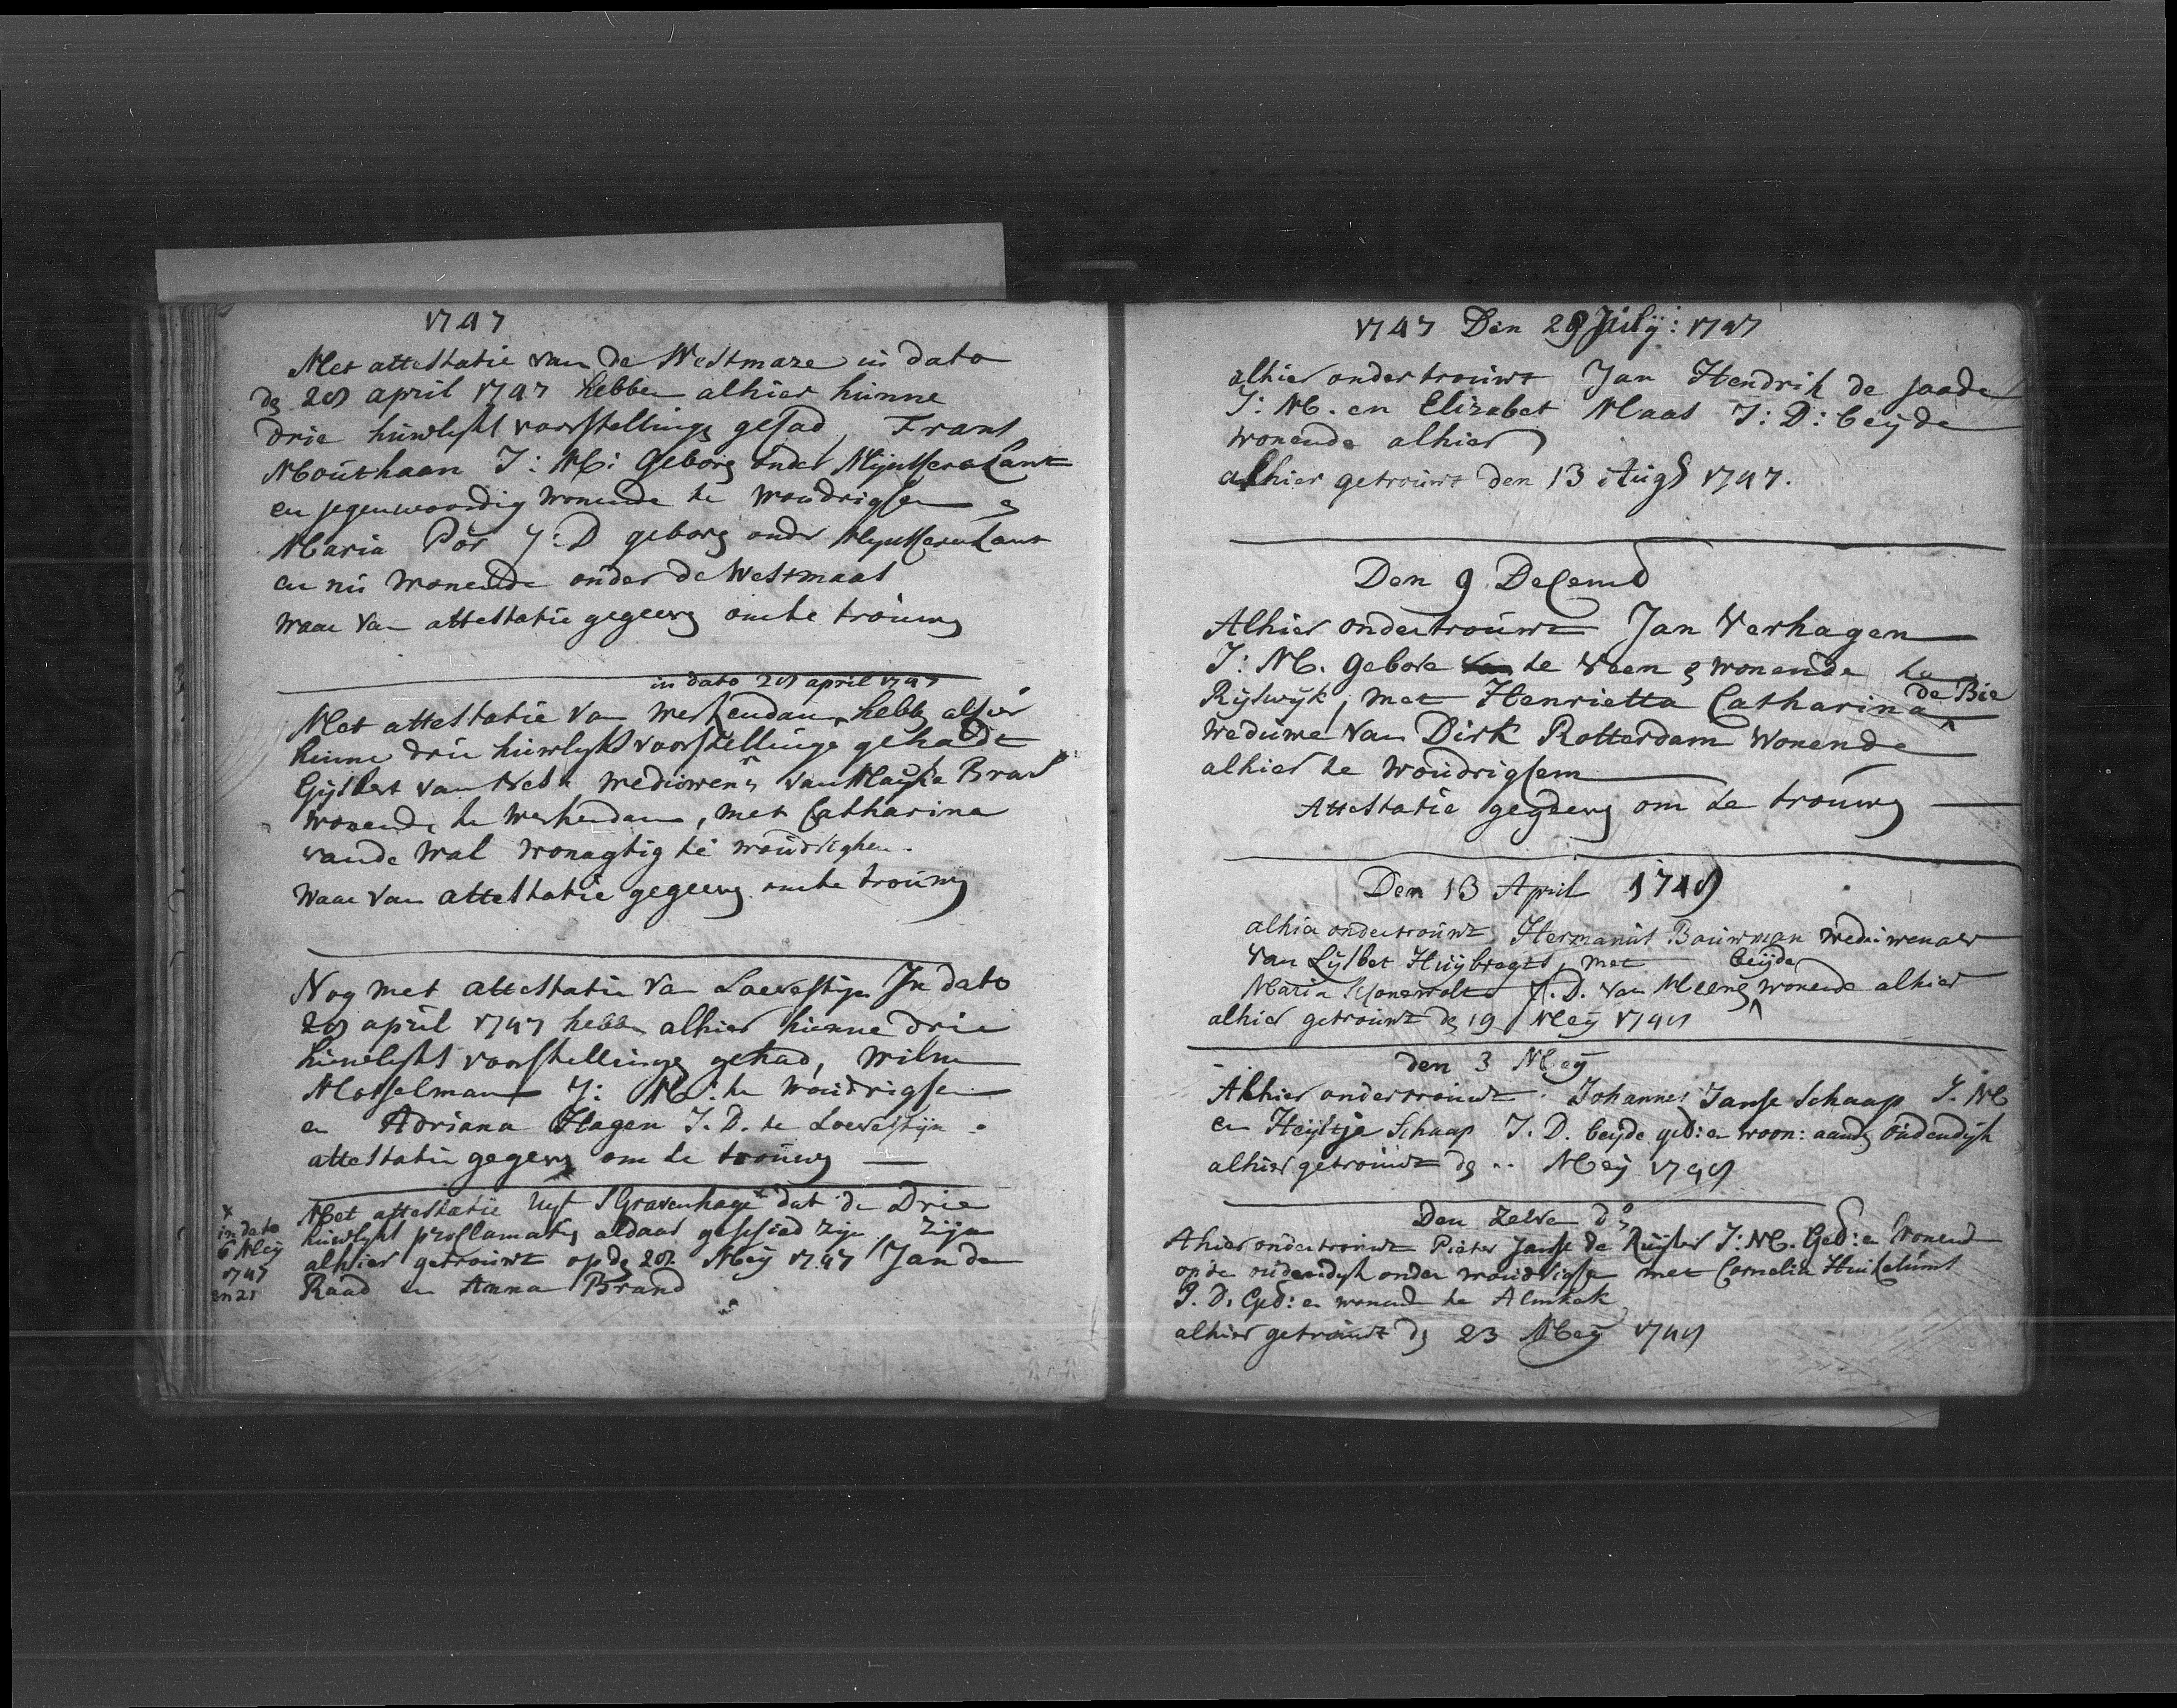 1747
Met attestatie van de Westmaze in dato
dẽ 28 april 1747 hebben alhier hunne
drie huwlykx voorstellinge gehad, Frans
Mouthaan J: M: Geborẽ onder Mijnsheerelant
en jegenwoordig wonende te woudrigsem en
Maria Pör J: D geborẽ onder Mijnsheerelant
en nú wonende onder de Westmaas
waar van attestatie gegeevẽ om te trouwẽ
in dato 28 april 1747
Met attestatie van werkendam, hebbẽ alhier
hunne drie huwlyks voorstellinge gehadt
Gijsbert van Nes weduwenr van Maijke Brand
wonende te werkendam, met Catharina
vande Wal wonagtig te woudrighem.
Waar van attestatie gegeevẽ om te trouwẽ
Nog met attestatie van Loevestijn In dato
28 april 1747 hebben alhier hunne drie
huwlykx voorstellinge gehad, Willem
Mosselman J: M: te woudrigsem
en Adriana Hagen J. D. te Loevestijn.
attestatie gegevẽ om te trouwẽ
Met attestatie uyt s'Gravenhage dat de Drie
x
in dato
6 Meij
1747
en 21
huwlykx proclamatiẽ aldaar geschied zijn, zijn
alhier getrouwt op dẽ 28 Meij 1747 Jan de
Raad en Anna Brand
1747 Den 29 Julij: 1747
alhier ondertrouwt Jan Hendrik de Jaade
J: M. en Elizabet Maas J: D: beyde
wonende alhier
alhier getrouwt den 13 Augs 1747.
Den 9 Decemb
Alhier ondertrouwt Jan Verhagen
J: M. Gebore van te Veen & wonende te
Rijswijk, met Henrietta Catharina de Bie
Weduwe van Dirk Rotterdam Wonende
alhier te Woudrigsem
Attestatie gegeevẽ om te trouwẽ
Den 13 April 1748
alhier ondertrouwt Hermanus Bouwman weduwenaer
Van Lijsbet Huijbregts, met
Maria Schonewolt J. D. van Meeuẽ beijde wonende alhier
alhier getrouwt dẽ 19 Meij 1748
den 3 Meij
Alhier ondertrouwt Johannes Janse Schaap J. M
en Heijltje Schaap J. D. beyde geb: en woon: aandẽ oudendijk
alhier getrouwt dẽ .. Meij 1748
Den zelve do
Alhier ondertrouwt Pieter Janse de Ruijter J: M. Geb: en Wonend
op de oudendijk onder woudrigsem met Cornelia Hinkelums
J. D. Geb: en wonende te Almkerk
alhier getrouwt dẽ 23 Meij 1748